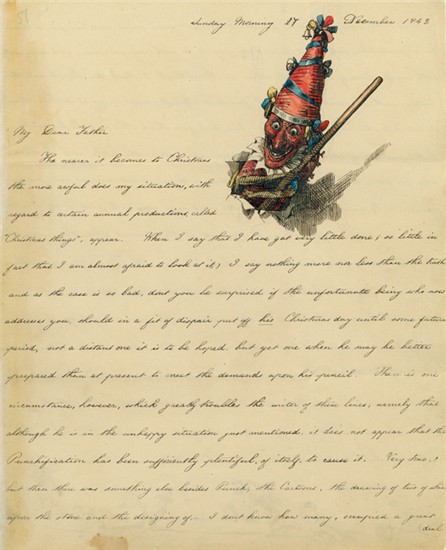 51
Sunday Morning 17 December 1843
My Dear Father
The nearer it becomes to Christmas
the more awful does my situation, with
regard to certain annual productions called
"Christmas things", appear. When I say that I have got very little done, (so little in
fact that I am almost afraid to look at it,) I say nothing more nor less than the truth
and as the case is so bad, dont you be surprised if the unfortunate being who now
addresses you, should in a fit of dispair put off his Christmas day until some future
period, not a distant one it is to be hoped but yet one when he may be better
prepared than at present to meet the demands upon his pencil. There is one
circumstance, however, which greatly troubles the writer of these lines; namely that
although he is in the unhappy situation just mentioned, it does not appear that the
Punchification has been sufficiently plentiful, of itself, to cause it. Very true,
but then there was something else besides Punch, the Cartoons, the drawing of two of
upon the stone and the designing of I don't know how many, occupied a great
deal